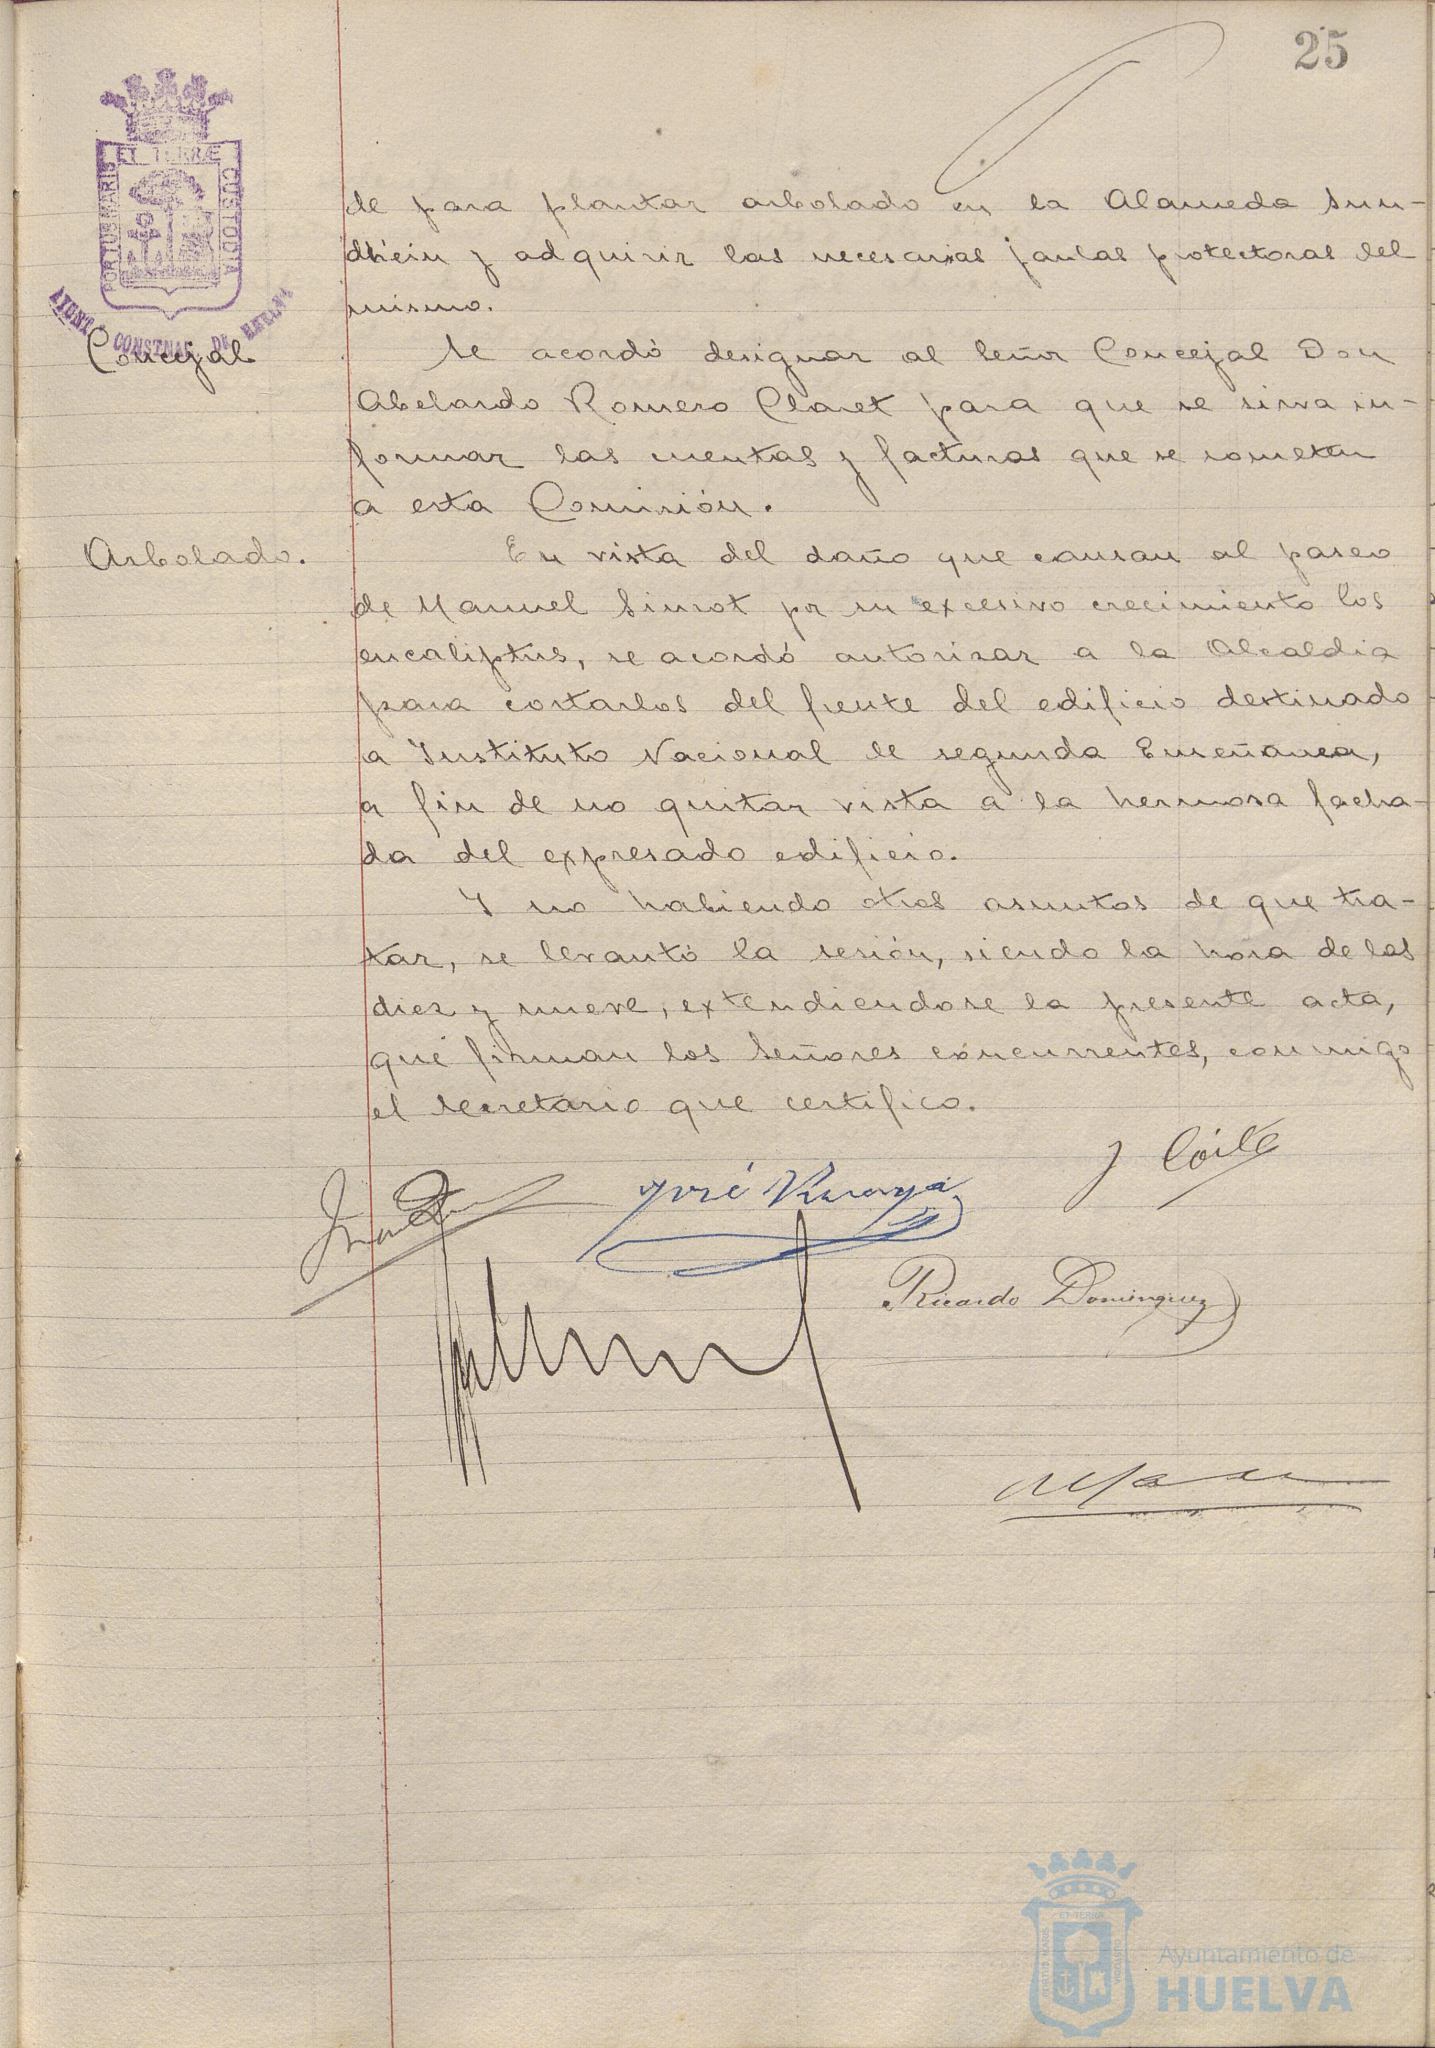 25
ET TERRÆ
PORTUS MARIS
CUSTODIA
AYUNT. CONSTNAL. DE HUELVA
de para plantar arbolado en la Alameda Sun-
dhein y adquirir las necesarias jaulas protectoras del
mismo.
Concejal
Se acordó designar al Señor Concejal Don
Abelardo Romero Claret para que se sirva in-
formar las cuentas y facturas que se someten
a esta Comisión.
Arbolado.
En vista del daño que causan al paseo
de Manuel Siurot pr su excesivo crecimiento los
eucaliptus, se acordó autorizar a la Alcaldia
para cortarlos del frente del edificio destinado
a Instituto Nacional de segunda Enseñanza,
a fin de no quitar vista a la hermosa facha-
da del expresado edificio.
Y no habiendo otros asuntos de que tra-
tar, se levantó la sesión, siendo la hora de las
diez y nueve, extendiendose la presente acta,
que firman los Señores concurrentes, conmigo
el Secretario que certifico.
José
Ricardo Dominguez
ET TERRA
PORTUS MARIS
CUSTODIA
Ayuntamiento de
HUELVA